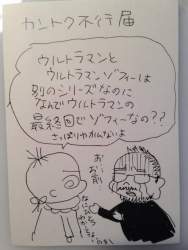 カントク不行届
ウルトラマンと
ウルトラマンゾフィーは
別のシリーズなのに
なんでウルトラマンの
最終回でゾフィーなの??
さっぱりやわんないよ
お…
お前